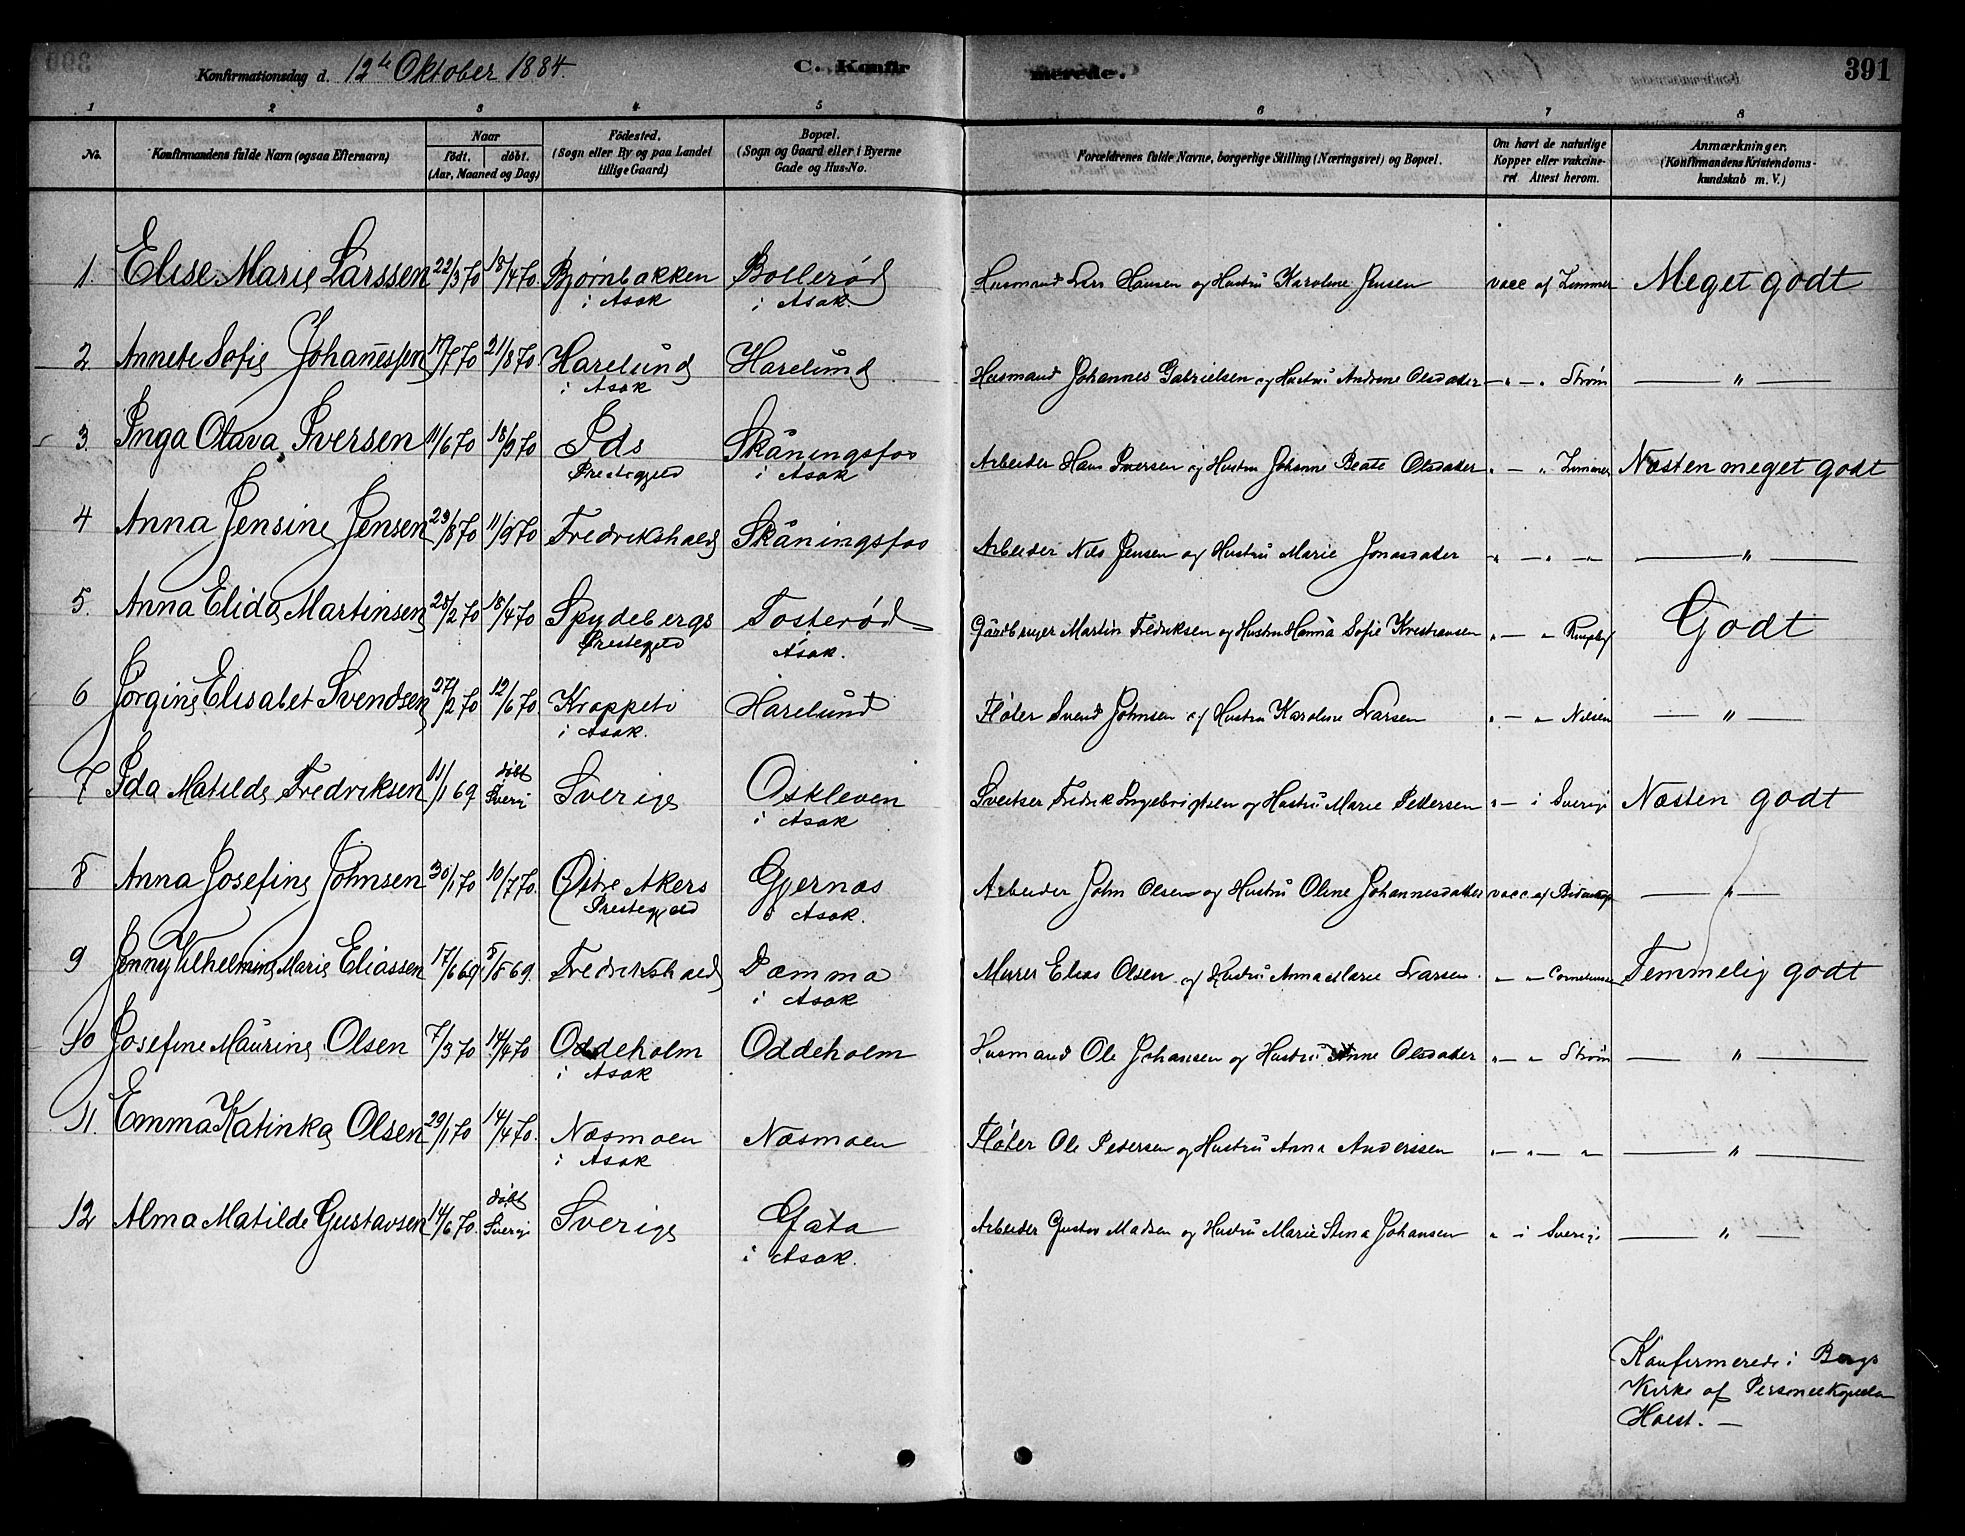 Konfirmationsdag d. 12te Oktober 1884. C. Konfirmerede. 391
1 2 3 4 5 6 7 8
No. Konfirmandens fulde Navn (ogsaa Efternavn) Naar født. døbt. (Aar, Maaned og Dag) Fødested. (Sogn eller By og paa Landet tillige Gaard) Bopæl. (Sogn og Gaard eller i Byerne Gade og Hus-No. Forældrenes fulde Navne, borgerlige Stilling (Næringsvei) og Bopæl. Om havt de naturlige Kopper eller vakcineret. Attest herom. Anmærkninger. (Konfirmandens Kristendomskundskab m. V.)
1. Elise Marie Larssen 22/3 70 18/4 70. Bjørnbakken Bøllerød Husmand Lars Hansen og Hustru Karoline Jensen vacc af Zimmer Meget godt
i Asak i Asak
2 Annete Sofie Johannessen 17/7 70 21/8 70. Harelund Harelund Husmand Johannes Gabrielsen og Hustru Andrine Olsdatter — " — " Strøm — " —
i Asak
3. Inga Olava Iversen 11/6 70 18/9 70 Ids Skåningsfos Arbeider Hans Iversen og Hustru Johanne Beate Olsdatter " — " Zimmer Næsten meget godt
Prestegjeld i Asak
4 Anna Jensine Jensen 29/8 70 11/9 70 Fredrikshald Skåningsfos Arbeider Nils Jensen og Hustru Marie Jonasdatter " — " — " — — " —
5. Anna Elida Martinsen 28/2 70 18/4 70 Spydebergs Tosterød Gårdbruger Martin Fredriksen og Hustru Hanna Sofie Kristiansen " — " Godt
Prestegjeld i Asak.
6 Jørgine Elisabet Svendsen 27/2 70 12/6 70. Kroppeti Harelund Fløter Svend Johnsen og Hustru Karoline Larsen " — " Nilsen — " —
i Asak.
7 Ida Matilde Fredriksen 11/1 69 døbt Sverige Sverige Oskleven Sveitser Fredrik Ingebrigtsen og Hustru Marie Pettersen " — i Sverige Næsten godt
i Asak
8 Anna Josefine Johnsen 30/1 70 10/7 70. Østre Akers Gjernæs Arbeider John Olsen og Hustru Oline Johannesdatter vacc. af — " —
Prestegjeld i Asak.
9 Jenny Vilhelmine Marie Eliassen 17/6 69 5/8 69. Fredrikshald Damma Murer Elias Olsen og Hustru Anna Marie Larsen. " — " Corneliussen Temmelig godt
i Asak
10 Josefine Maurine Olsen 7/3 70 14/4 70 Oddeholm Oddeholm Husmand Ole Johansen og Hustru Anne Olsdatter " — " Strøm — " —
i Asak
11. Emma Katinka Olsen 29/1 70 14/4 70. Næsmoen Næsmoen Fløter Ole Pedersen og Hustru Anna Anderssen " — " — " — " —
i Asak
12 Alma Matilde Gustavsen 14/6 70. døbt Sverige Sverige Gata Arbeider Gustav Madsen og Hustru Marie Stina Johansen " i Sverige — " —
i Asak.
Konfirmerede i Bergs
Kirke af Personelkapellan
Holst. —